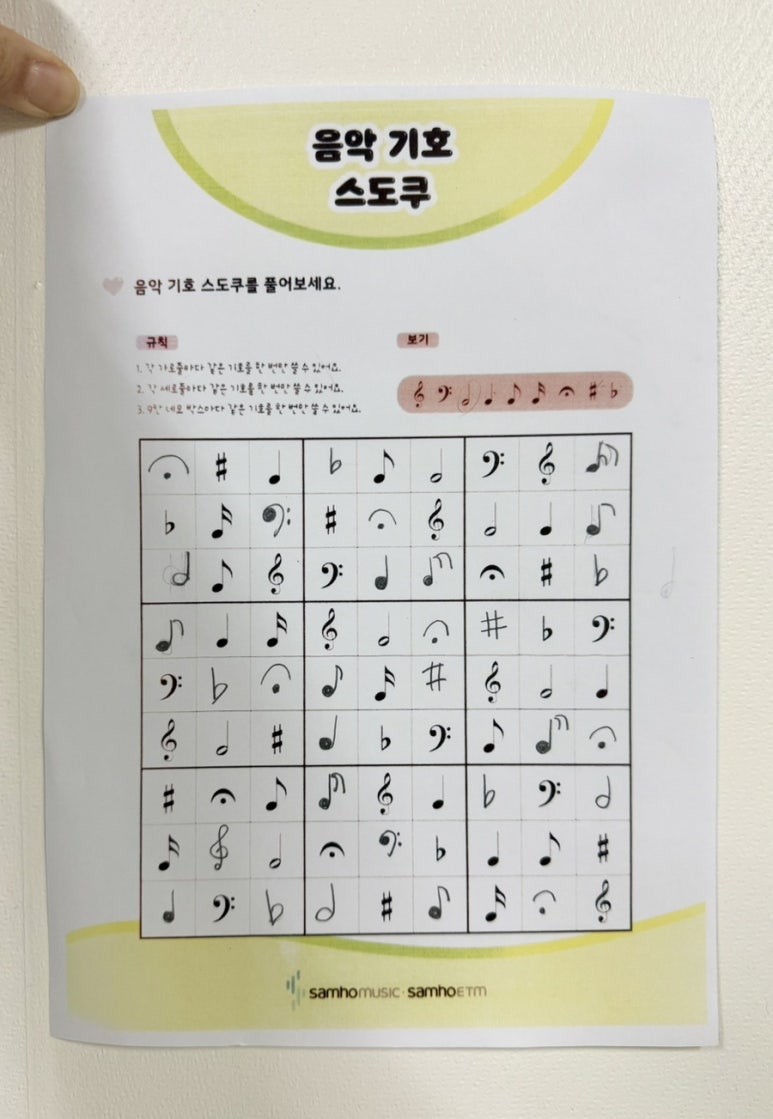 음악 기호
스도쿠
음악 기호 스도쿠를 풀어보세요.
규칙
1. 각 가로줄마다 같은 기호를 한 번만 쓸 수 있어요.
2. 각 세로줄마다 같은 기호를 한 번만 쓸 수 있어요.
3. 9칸 네모 박스마다 같은 기호를 한 번만 쓸 수 있어요.
보기
samhomusic · samhoETM